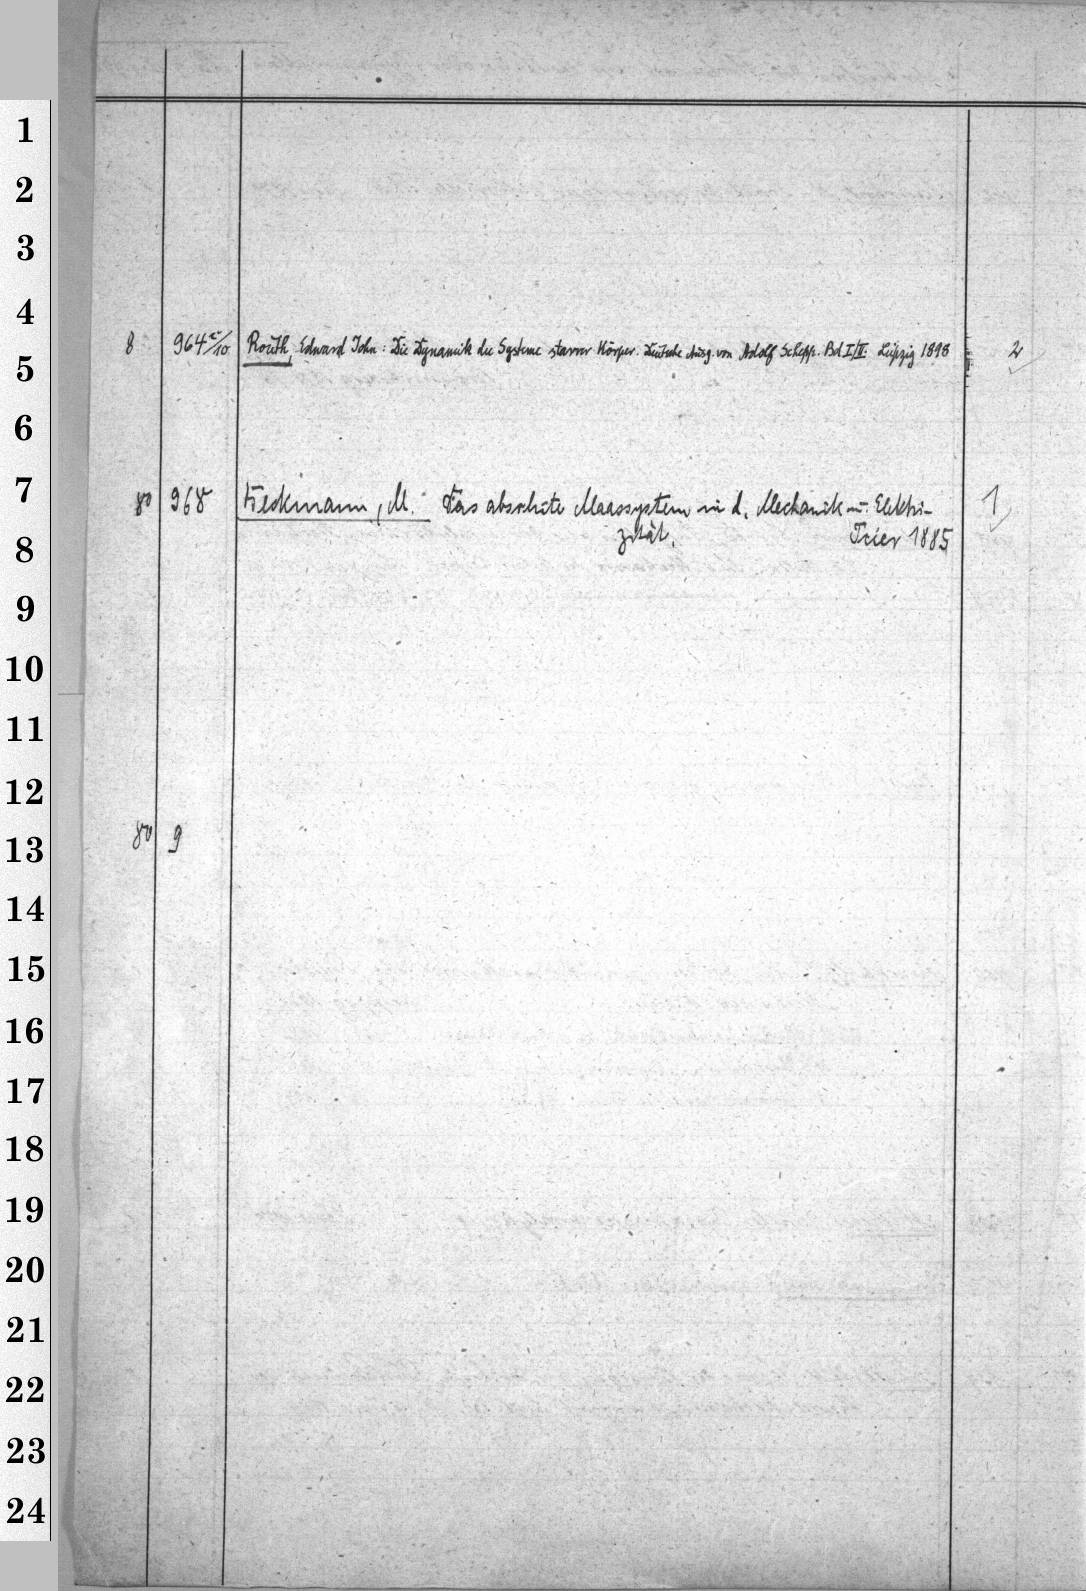 1
2
3
4
8 964 c/10 Routh, Edward John: Die Dynamik der Systeme starrer Körper. Deutsche Ausg. von Adolf Schepp. Bd I/II. Leipzig 1898 2
5
6
7
80 968 Fleckmann, M. Das absolute Maassystem in d. Mechanik u. Elektri-
zität. Trier 1885 1
8
9
10
11
12
80 9
13
14
15
16
17
18
19
20
21
22
23
24